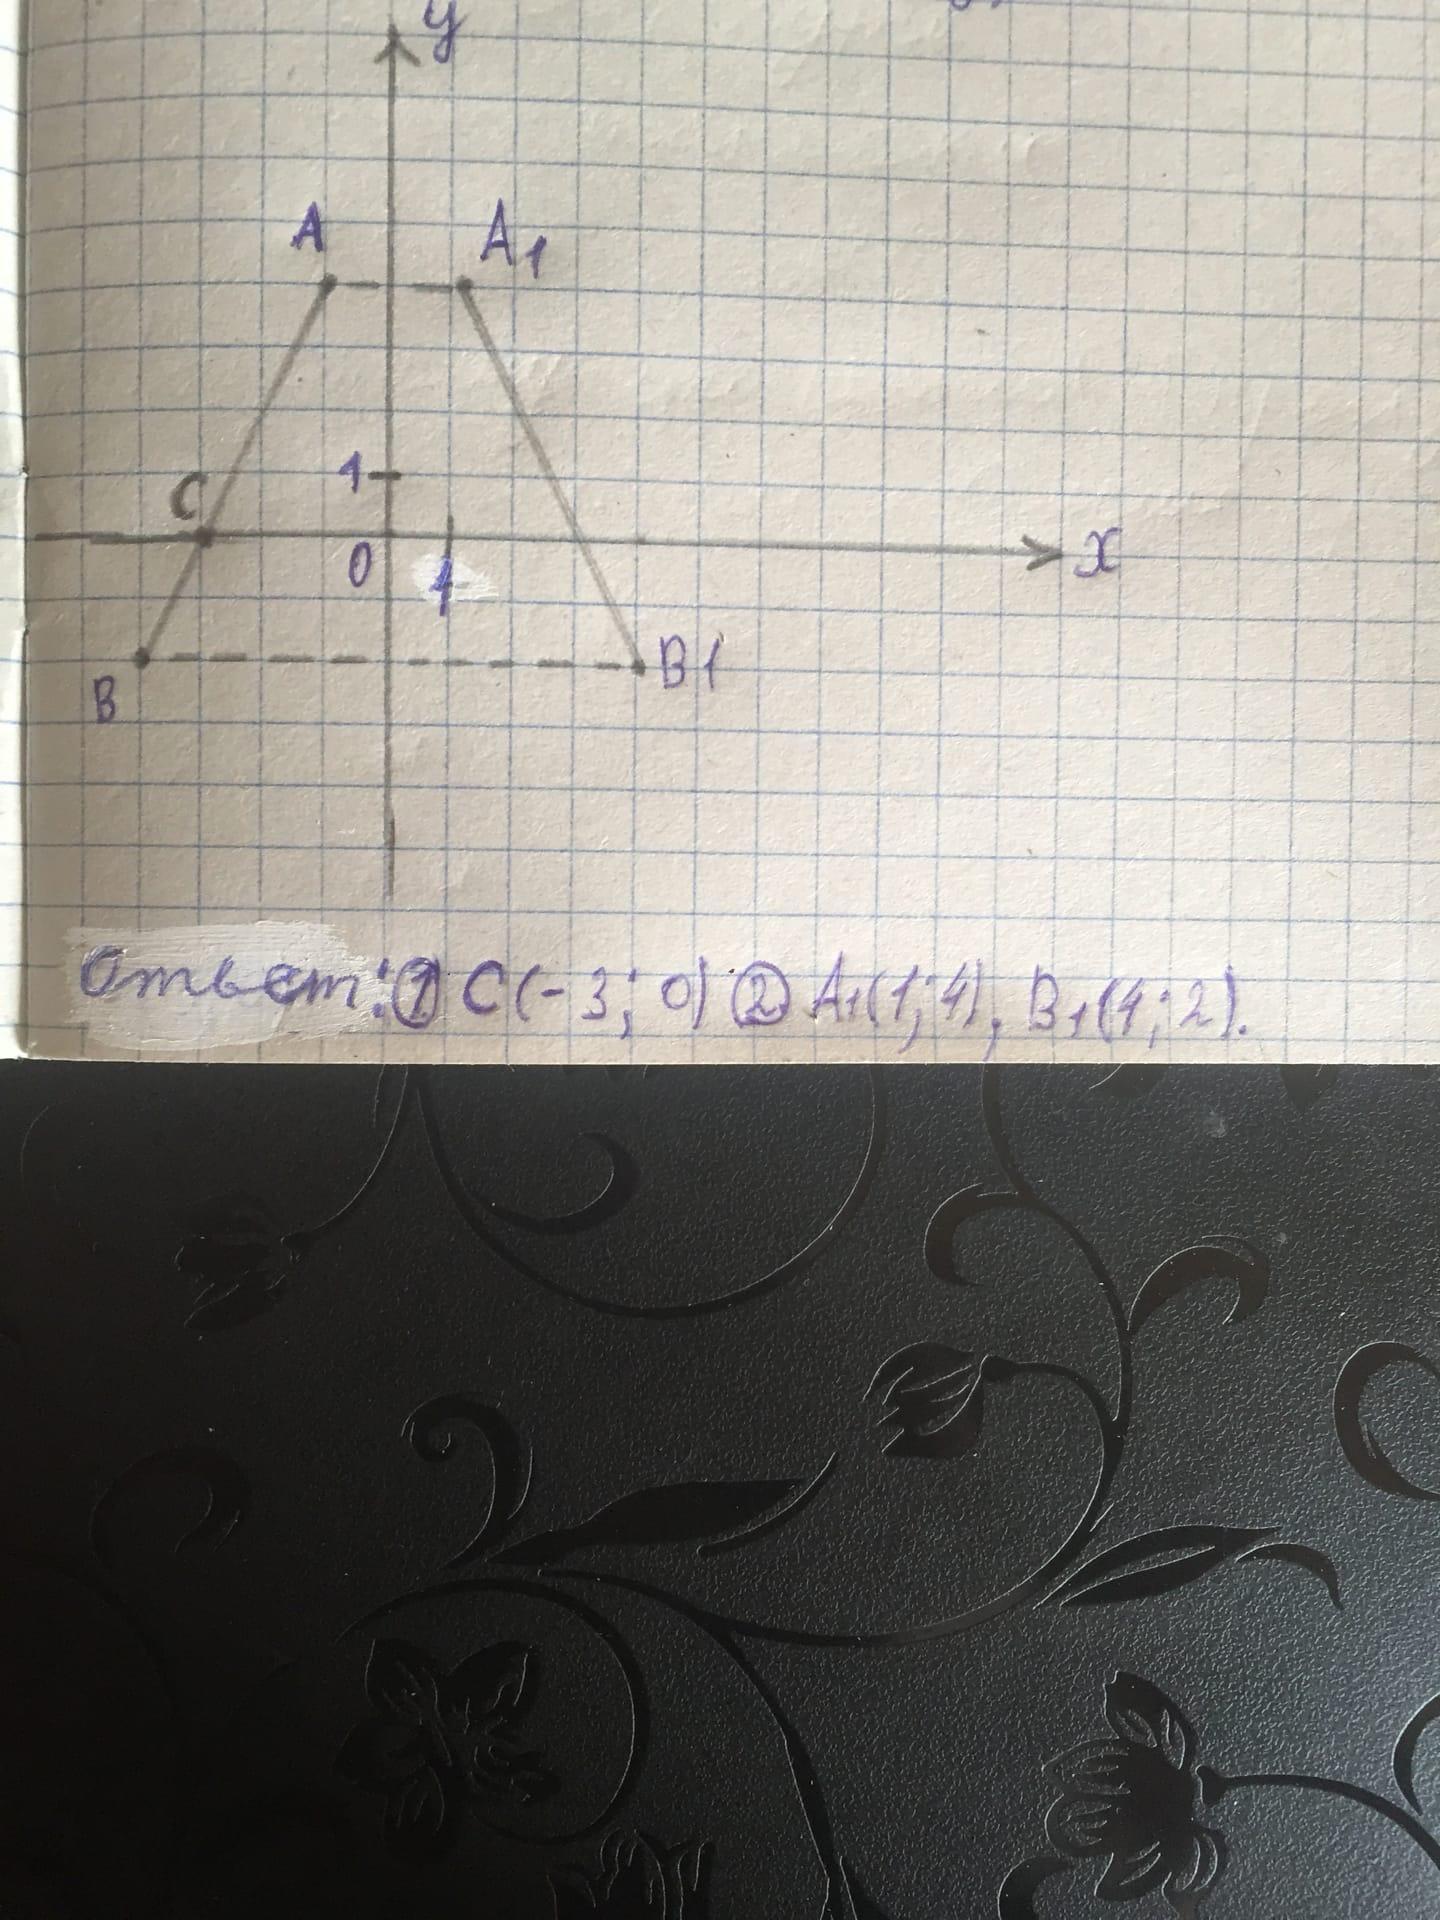 y
A A1
C 1
0 1 x
B B1
Ответ: ① C (-3; 0) ② A1(1; 4), B1(4; 2).